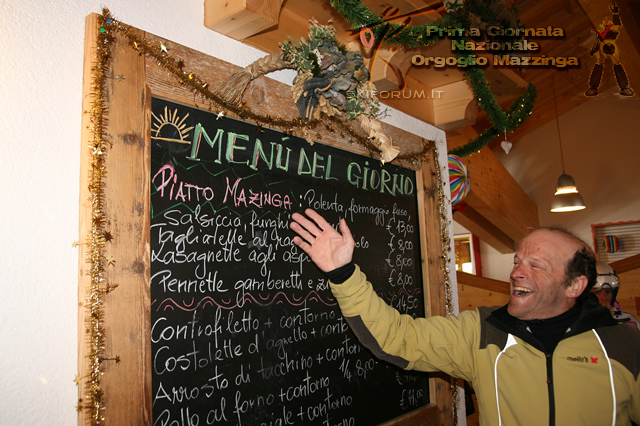 Prima Giornata
Nazionale
Orgoglio Mazzinga
SKIFORUM.IT
MENÙ DEL GIORNO
PIATTO MAZINGA: Polenta, formaggio fuso,
Salsiccia, funghi € 13,00
Tagliatelle al € 8,00
Lasagnette agli € 8,00
€ 8,00
Pennette gamberetti e
Controfiletto + contorno
Costolette d'agnello + contorno
Arrosto di tacchino + contorno 8,00
Pollo al forno + contorno
+ contorno